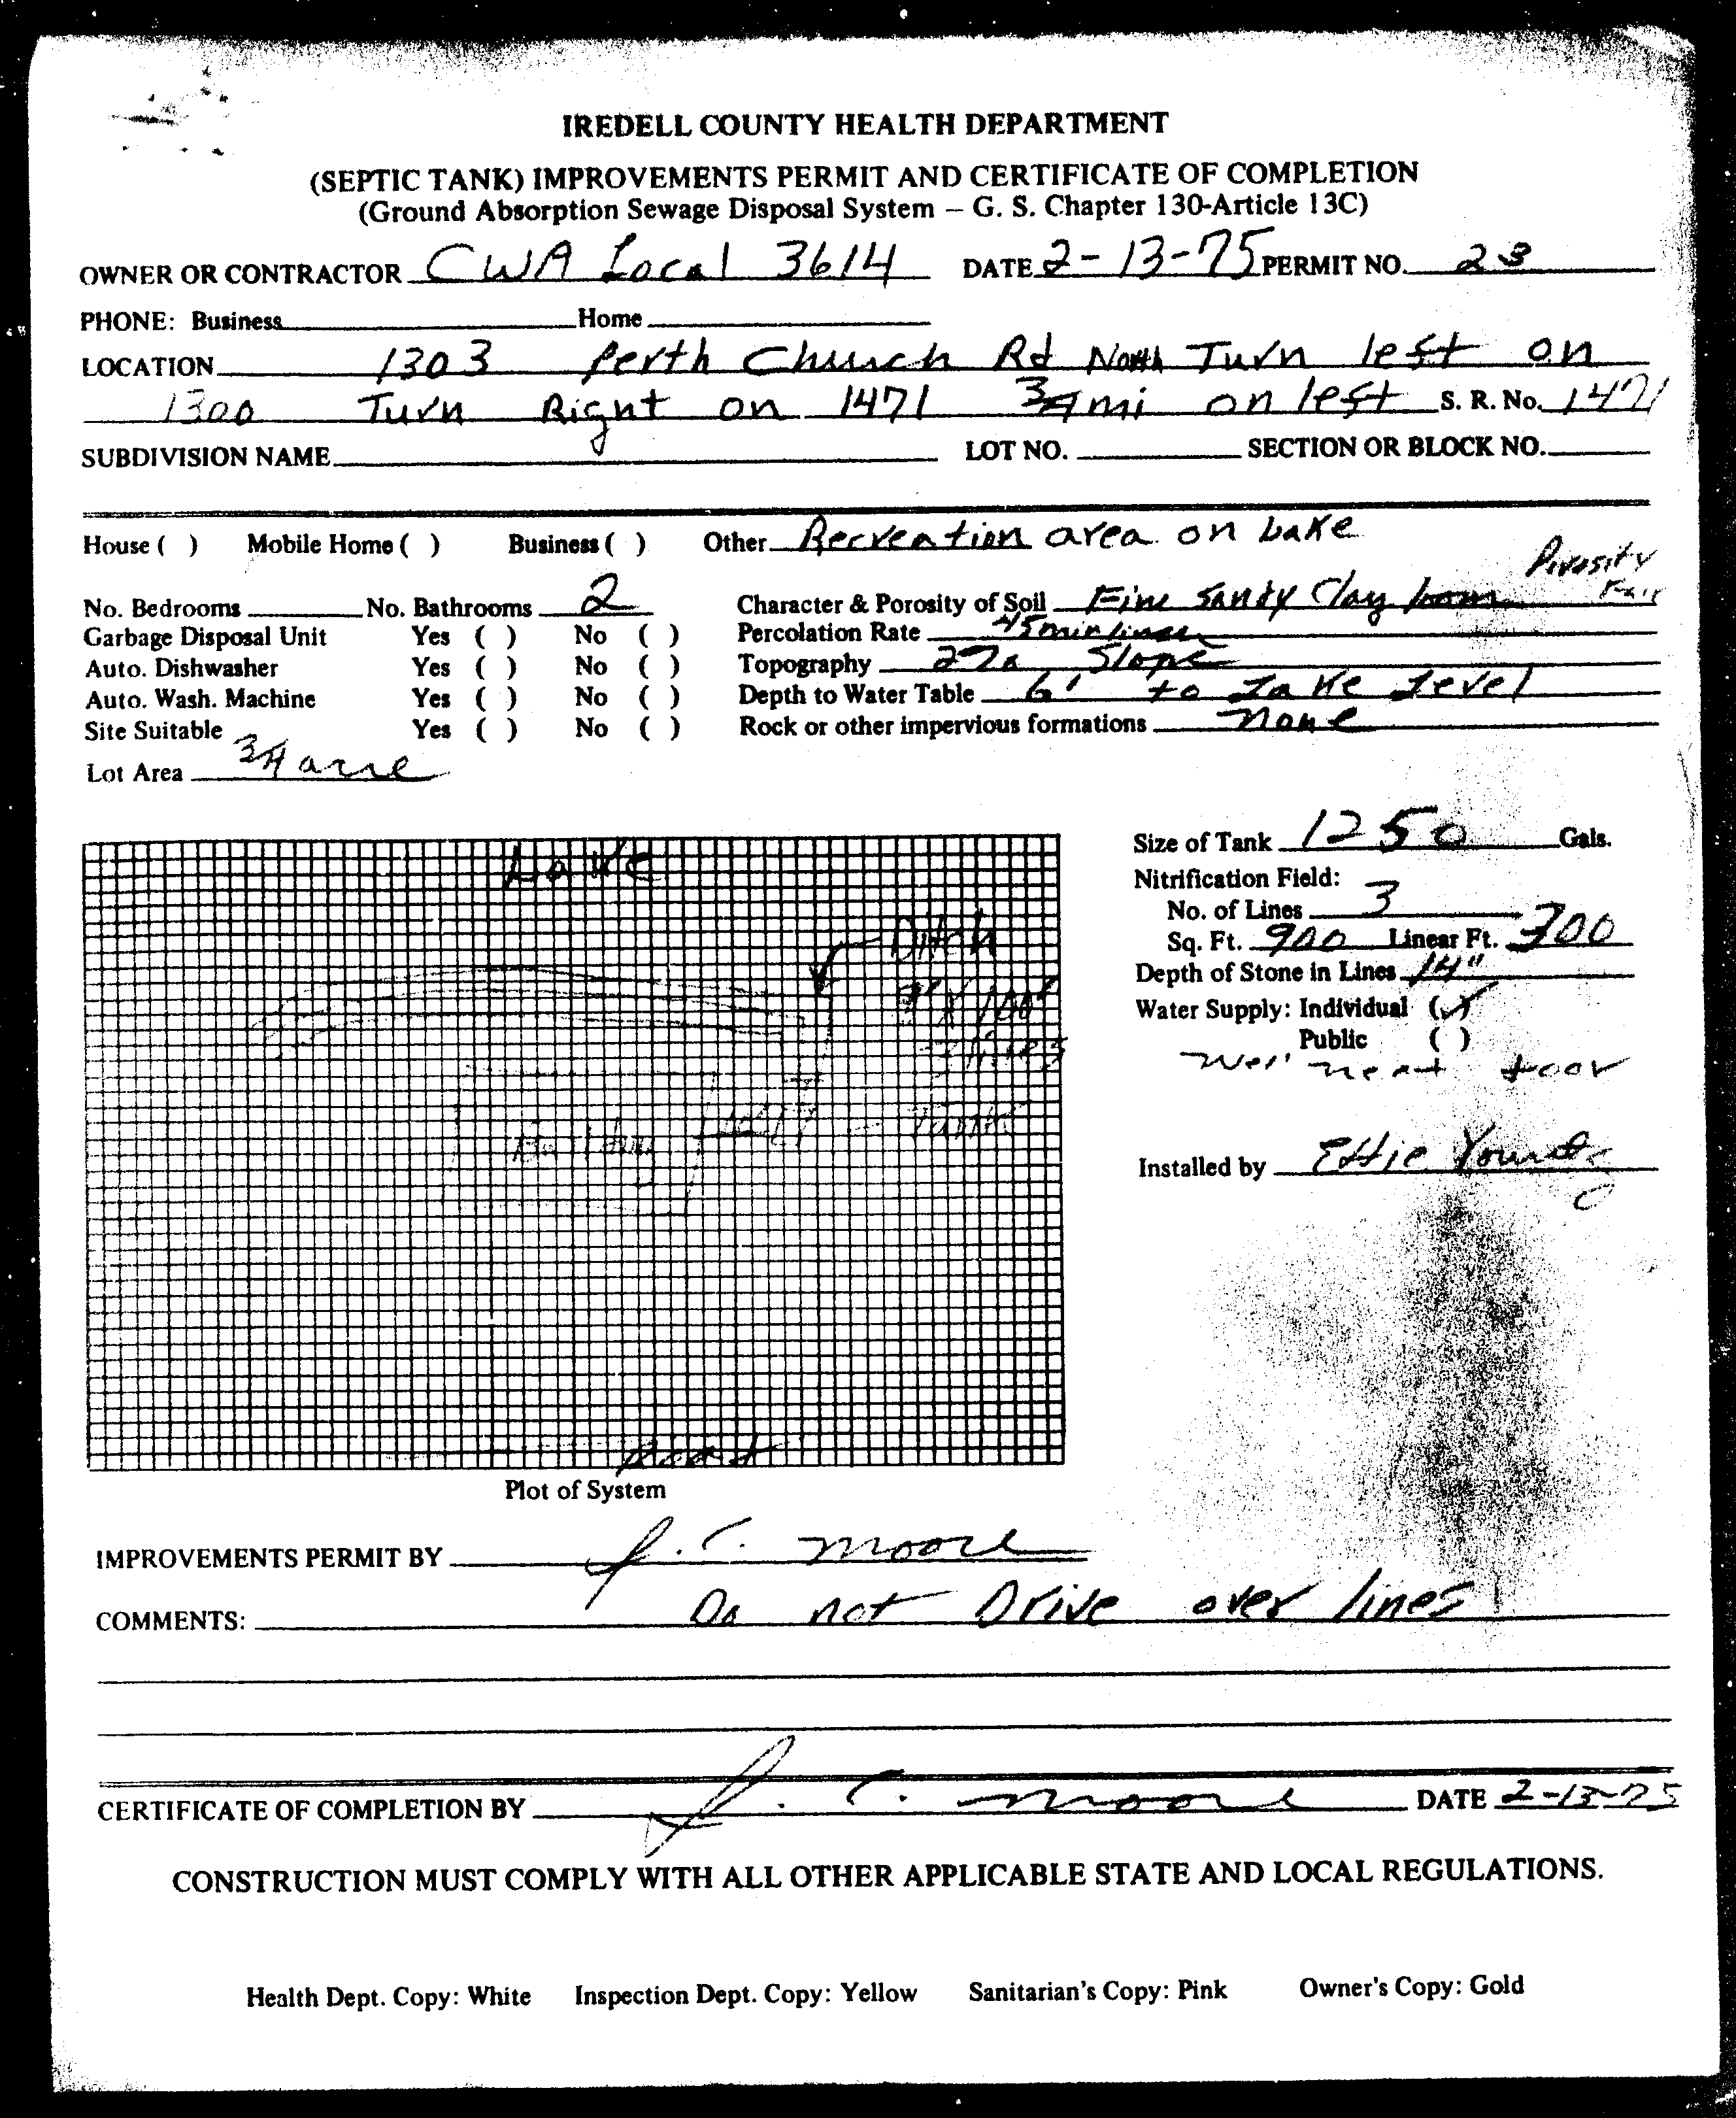 IREDELL COUNTY HEALTH DEPARTMENT
(SEPTIC TANK) IMPROVEMENTS PERMIT AND CERTIFICATE OF COMPLETION
(Ground Absorption Sewage Disposal System – G. S. Chapter 130-Article 13C)
OWNER OR CONTRACTOR CWA Local 3614 DATE 2-13-75 PERMIT NO. 23
PHONE: Business Home
LOCATION 1303 Perth Church Rd North Turn left on
1300 Turn Right on 1471 3/4 mi on left S. R. No. 1471
SUBDIVISION NAME LOT NO. SECTION OR BLOCK NO.
House ( ) Mobile Home ( ) Business ( ) Other Recreation area on Lake
Porosity Fair
No. Bedrooms No. Bathrooms 2 Character & Porosity of Soil Fine Sandy Clay loam
Garbage Disposal Unit Yes ( ) No ( ) Percolation Rate 45 min/inch
Auto. Dishwasher Yes ( ) No ( ) Topography 2% Slope
Auto. Wash. Machine Yes ( ) No ( ) Depth to Water Table 6' to Lake Level
Site Suitable Yes ( ) No ( ) Rock or other impervious formations none
Lot Area 3/4 acre
Size of Tank 1250 Gals.
Nitrification Field:
No. of Lines 3
Sq. Ft. 900 Linear Ft. 300
Depth of Stone in Lines 14"
Water Supply: Individual (✓)
Public ( )
Well next door
Installed by Effie
Lake
Ditch
3' x 100'
3 lines
Building Tank
Road
Plot of System
IMPROVEMENTS PERMIT BY J. C. Moore
COMMENTS: Do not Drive over lines
CERTIFICATE OF COMPLETION BY J. C. Moore DATE 2-13-75
CONSTRUCTION MUST COMPLY WITH ALL OTHER APPLICABLE STATE AND LOCAL REGULATIONS.
Health Dept. Copy: White Inspection Dept. Copy: Yellow Sanitarian's Copy: Pink Owner's Copy: Gold